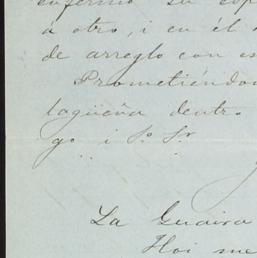 enfermo su
á otro, i en él
de arreglo con es
Prometiéndo
lagüeña dentro
go i S. Sr
La Guaira
Hoi me